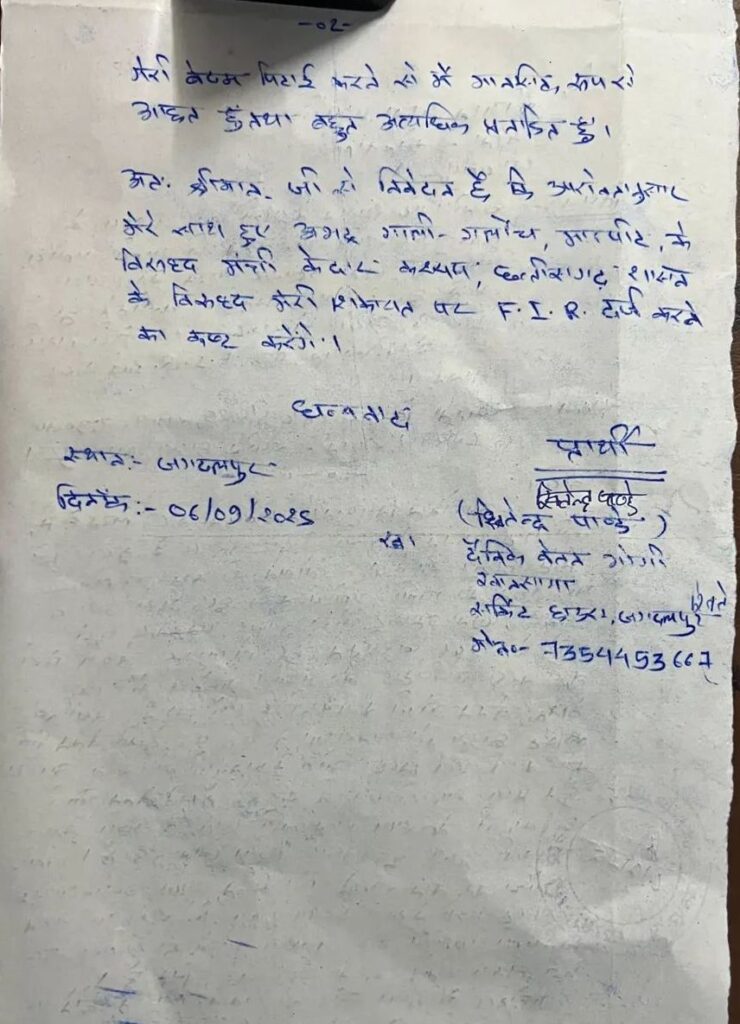 -02-
मेरी बेदम पिटाई करने से मैं मानसिक रूप से
आहत हुँ तथा बहुत अत्यधिक प्रताडित हुँ।
अतः श्रीमान जी से निवेदन है कि उपरोक्तानुसार
मेरे साथ हुए अभद्र गाली-गलौच, मारपीट, के
विरूध्द मंत्री केदार कश्यप, छत्तीसगढ़ शासन
के विरूध्द मेरी शिकायत पर F.I.R. दर्ज करने
का कष्ट करेंगे।
धन्यवाद
स्थान:- जगदलपुर
दिनाँक:- 06/09/2025
प्रार्थी
(खितेन्द्र पाण्डे)
दैनिक वेतन भोगी
खानसामा
सर्किट हाउस, जगदलपुर
मो.नं०- 7354453667